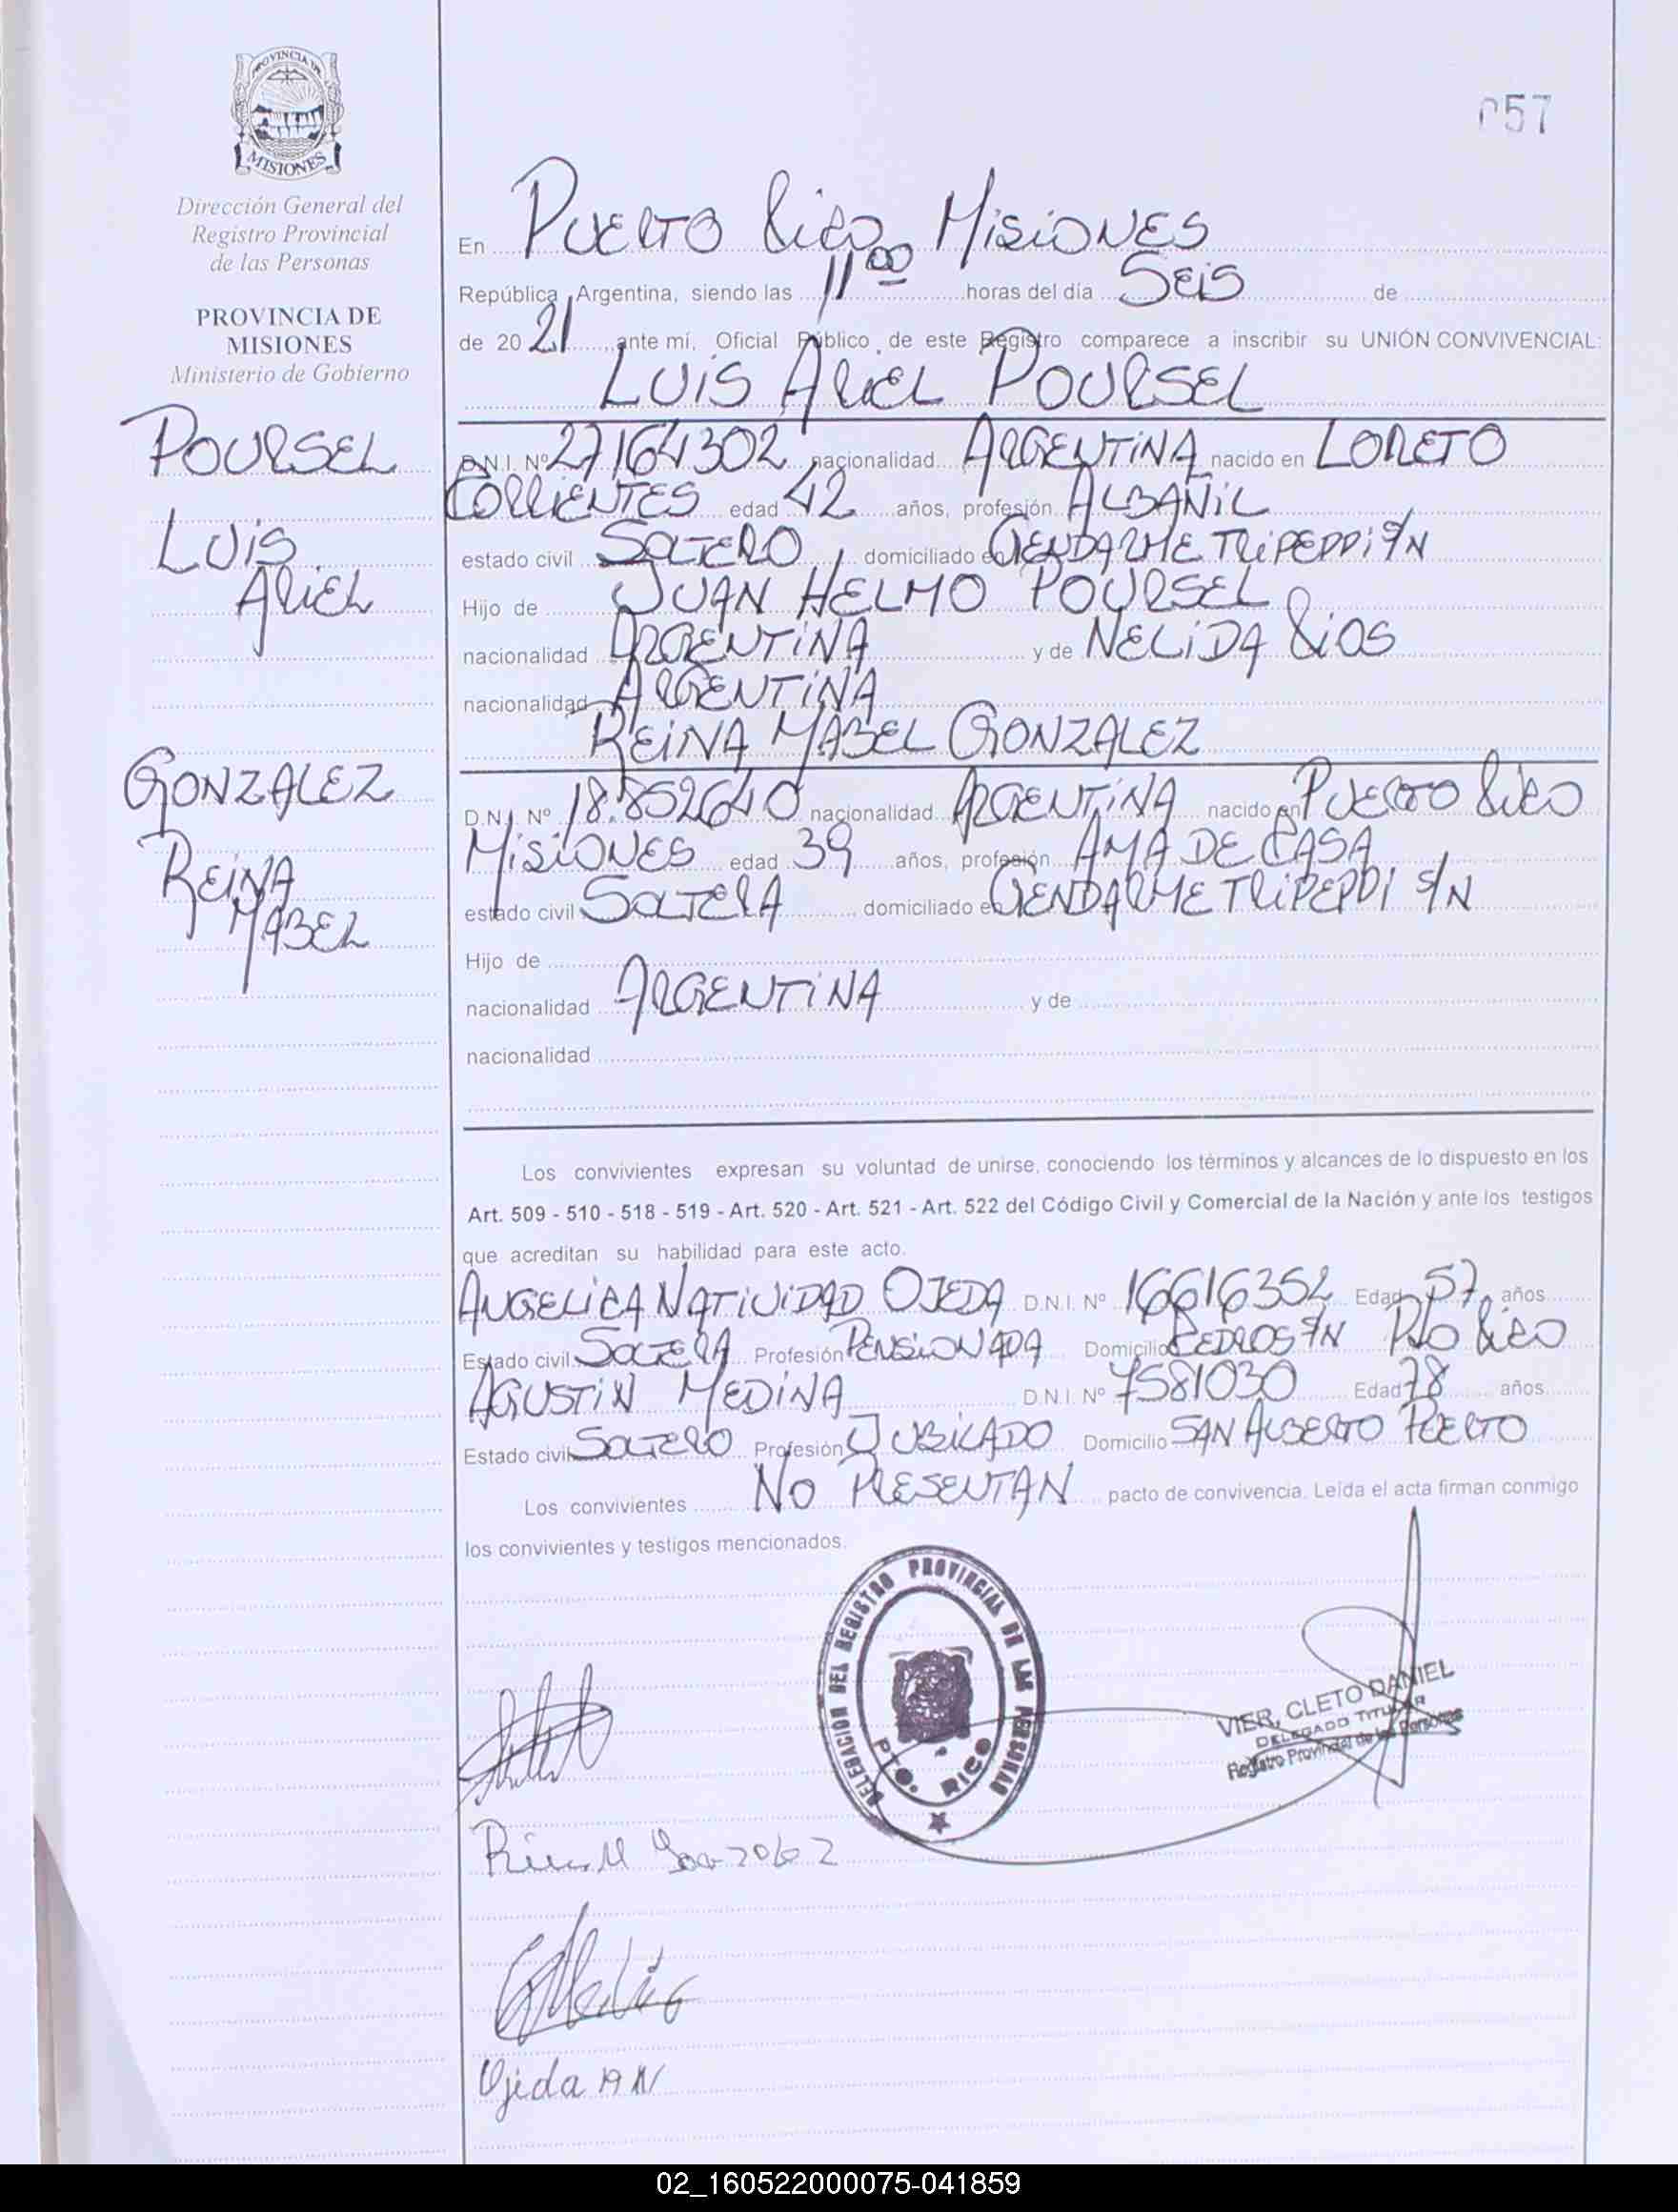 PROVINCIA DE
MISIONES
Dirección General del
Registro Provincial
de las Personas
PROVINCIA DE
MISIONES
Ministerio de Gobierno
POURSEL
LUIS
ARIEL
GONZALEZ
REINA
MABEL
057
En PUERTO RICO MISIONES
República Argentina, siendo las 11 00 horas del día SEIS de
de 20 21 ante mí, Oficial Público de este Registro comparece a inscribir su UNIÓN CONVIVENCIAL:
LUIS ARIEL POURSEL
D.N.I. Nº 27164302 nacionalidad ARGENTINA nacido en LORETO
CORRIENTES edad 42 años, profesión ALBAÑIL
estado civil SOLTERO domiciliado en GENDARME TRIPEPPI S/N
Hijo de JUAN HELMO POURSEL
nacionalidad ARGENTINA y de NELIDA RIOS
nacionalidad ARGENTINA
REINA MABEL GONZALEZ
D.N.I. Nº 18.852640 nacionalidad ARGENTINA nacido en PUERTO RICO
MISIONES edad 39 años, profesión AMA DE CASA
estado civil SOLTERA domiciliado en GENDARME TRIPEPPI S/N
Hijo de
nacionalidad ARGENTINA y de
nacionalidad
Los convivientes expresan su voluntad de unirse, conociendo los términos y alcances de lo dispuesto en los
Art. 509 - 510 - 518 - 519 - Art. 520 - Art. 521 - Art. 522 del Código Civil y Comercial de la Nación y ante los testigos
que acreditan su habilidad para este acto.
ANGELICA NATIVIDAD OJEDA D.N.I. Nº 16616352 Edad 57 años
Estado civil SOLTERA Profesión PENSIONADA Domicilio CEDROS S/N PTO RICO
AGUSTIN MEDINA D.N.I. Nº 7581030 Edad 78 años
Estado civil SOLTERO Profesión JUBILADO Domicilio SAN ALBERTO PUERTO
Los convivientes NO PRESENTAN pacto de convivencia. Leída el acta firman conmigo
los convivientes y testigos mencionados.
DELEGACION DEL REGISTRO PROVINCIAL DE LAS PERSONAS
PTO. RICO
VIER, CLETO DANIEL
DELEGADO TITULAR
Registro Provincial de las Personas
Ojeda A N
02_160522000075-041859